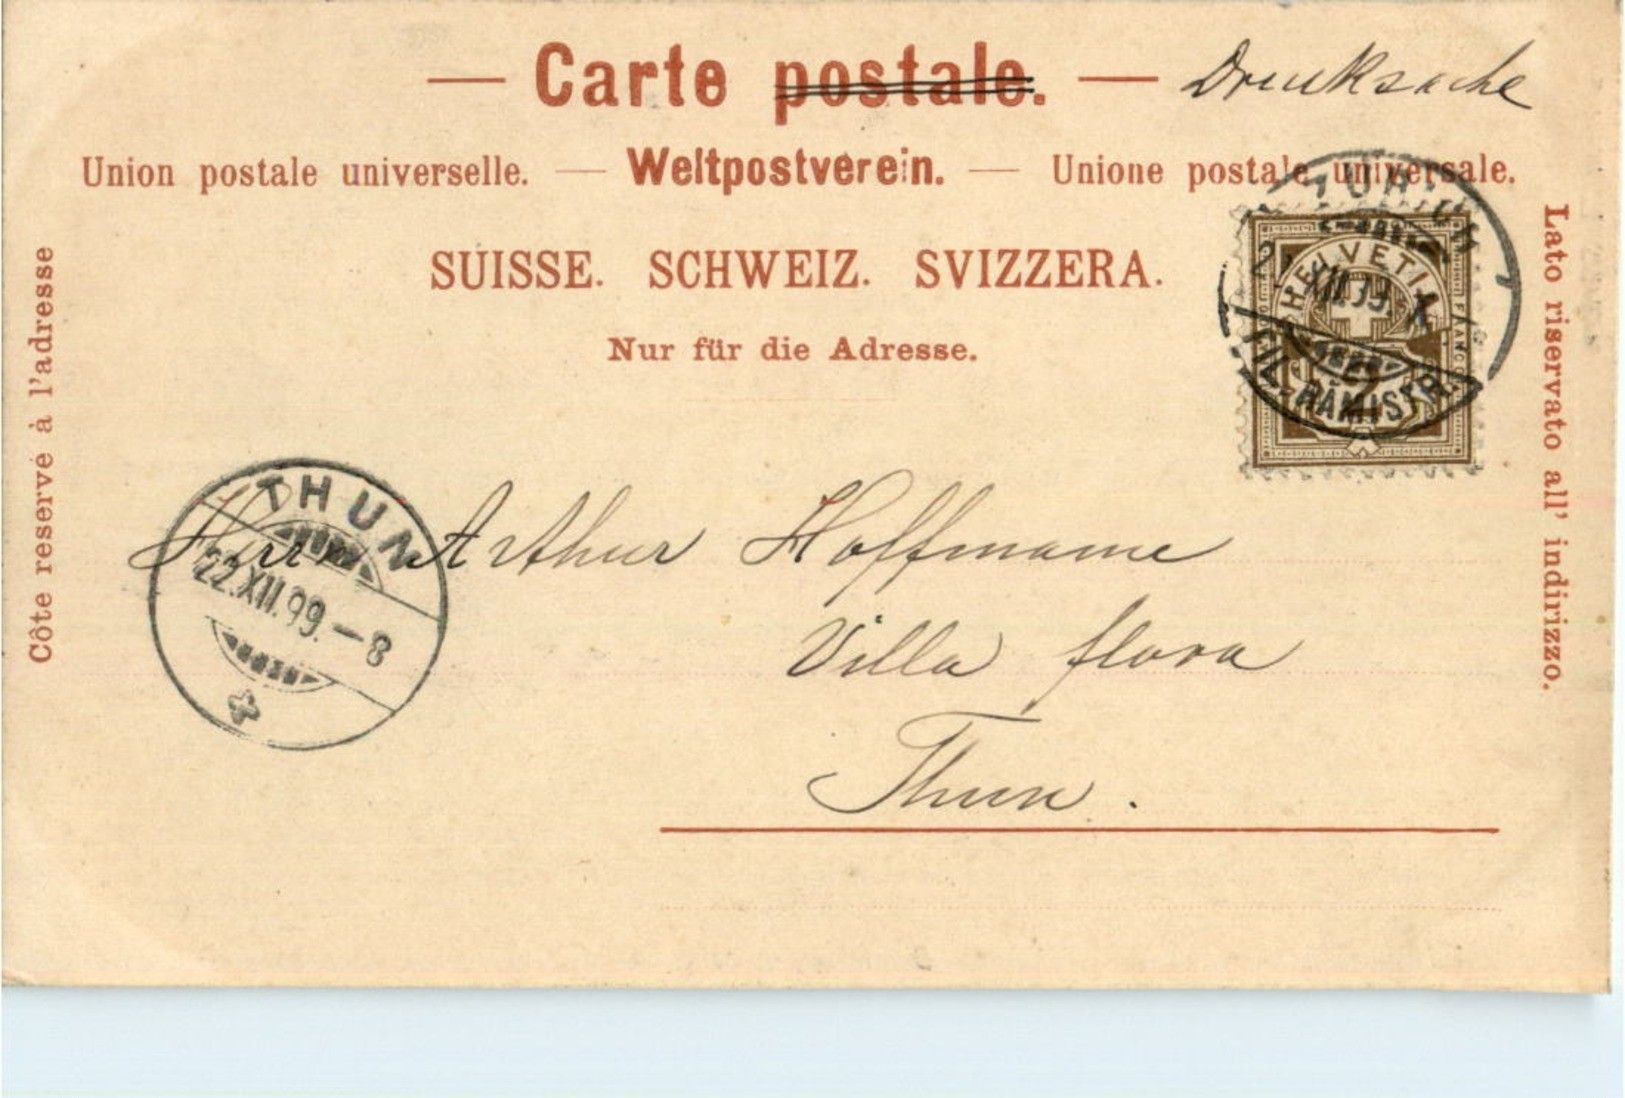 — Carte postale. — Drucksache
Union postale universelle. — Weltpostverein. — Unione postale universale.
SUISSE. SCHWEIZ. SVIZZERA.
Nur für die Adresse.
Côte reservé à l'adresse
Lato riservato all' indirizzo.
ZÜRICH
XII.99. X
FIL. RÄMISTR.
HELVETIA
FRANCO
2
THUN
22.XII.99.—8
Herrn Arthur Hoffmann
Villa flora
Thun.